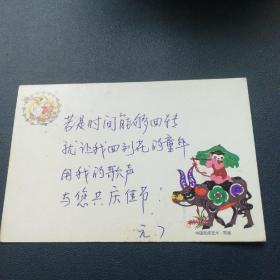 若是时间能够回转
就让我回到花的童年
用我的歌声
与您共庆佳节!
元
中国民间艺术·剪纸